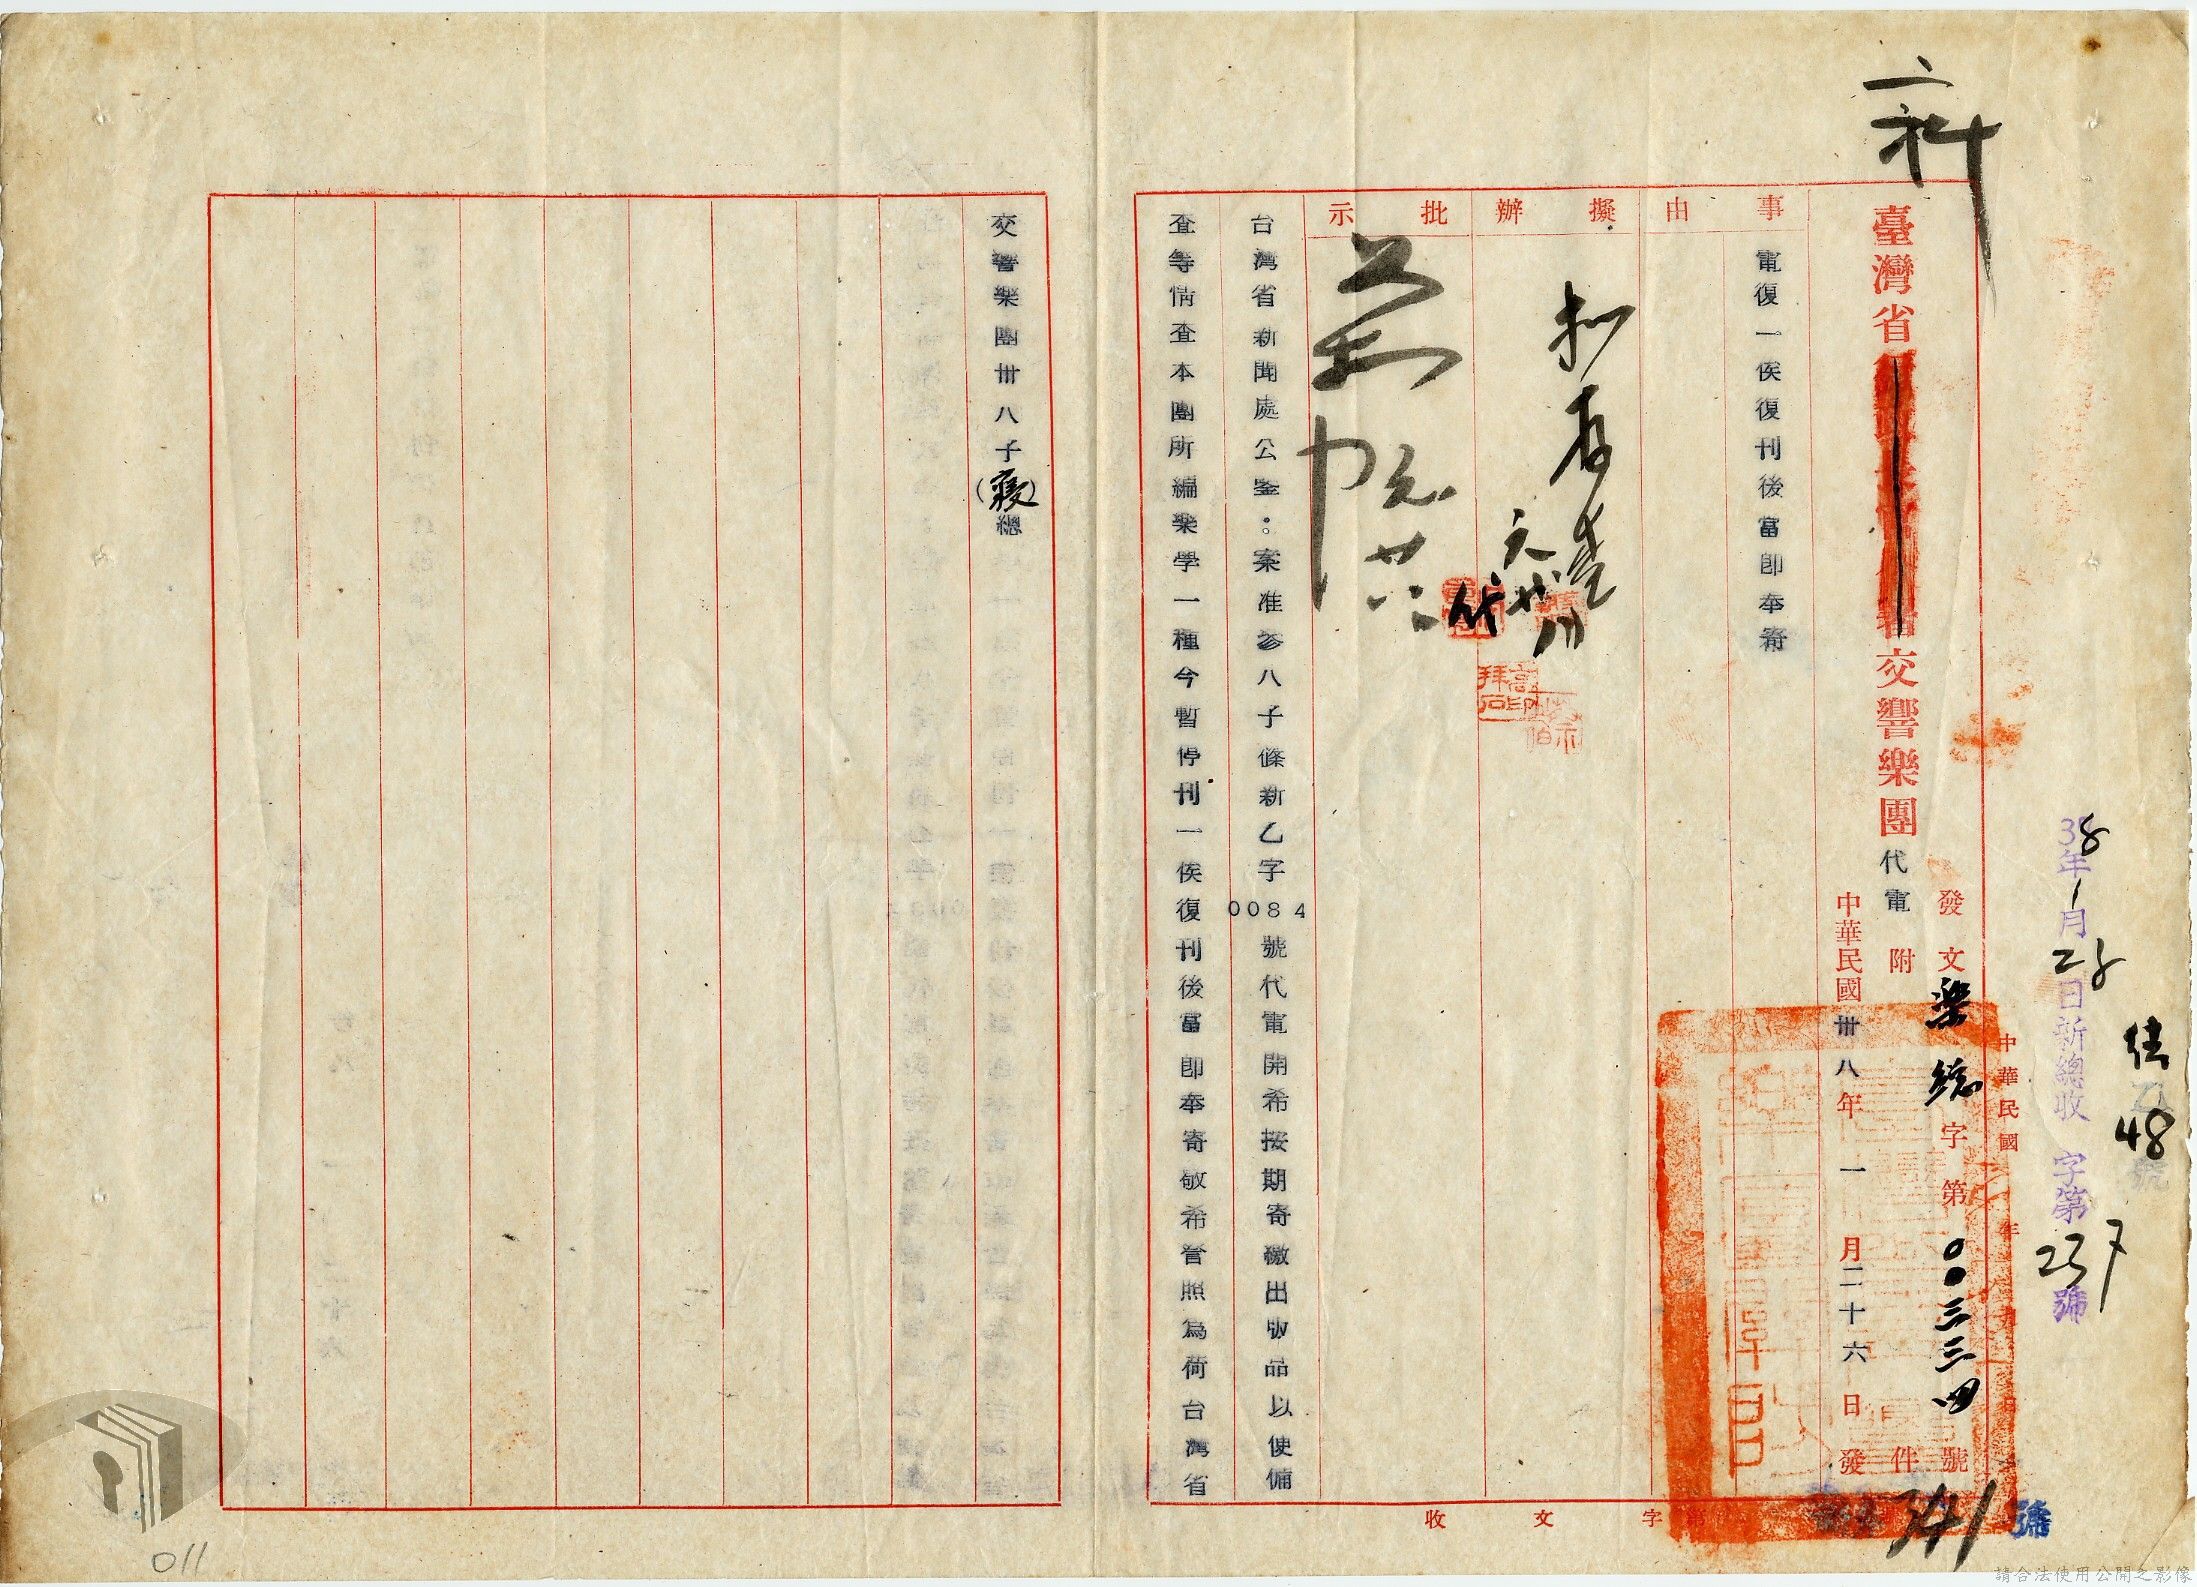 二科
38年1月28日新總收 字第237號
佳
48
號
發文樂總字第〇〇三三四號
附 件
中華民國卅八年一月二十六日發
臺灣省交響樂團代電
中華民國 年
事由
電復一俟復刊後當即奉寄
擬辦
批示
代
台灣省新聞處公鑒：案准參八子篠新乙字0084號代電開希按期寄繳出版品以便備
查等情查本團所編樂學一種今暫停刊一俟復刊後當即奉寄敬希詧照為荷台灣省
交響樂團卅八子（寢）總
收 文 字 第
341號
011
請合法使用公開之影像